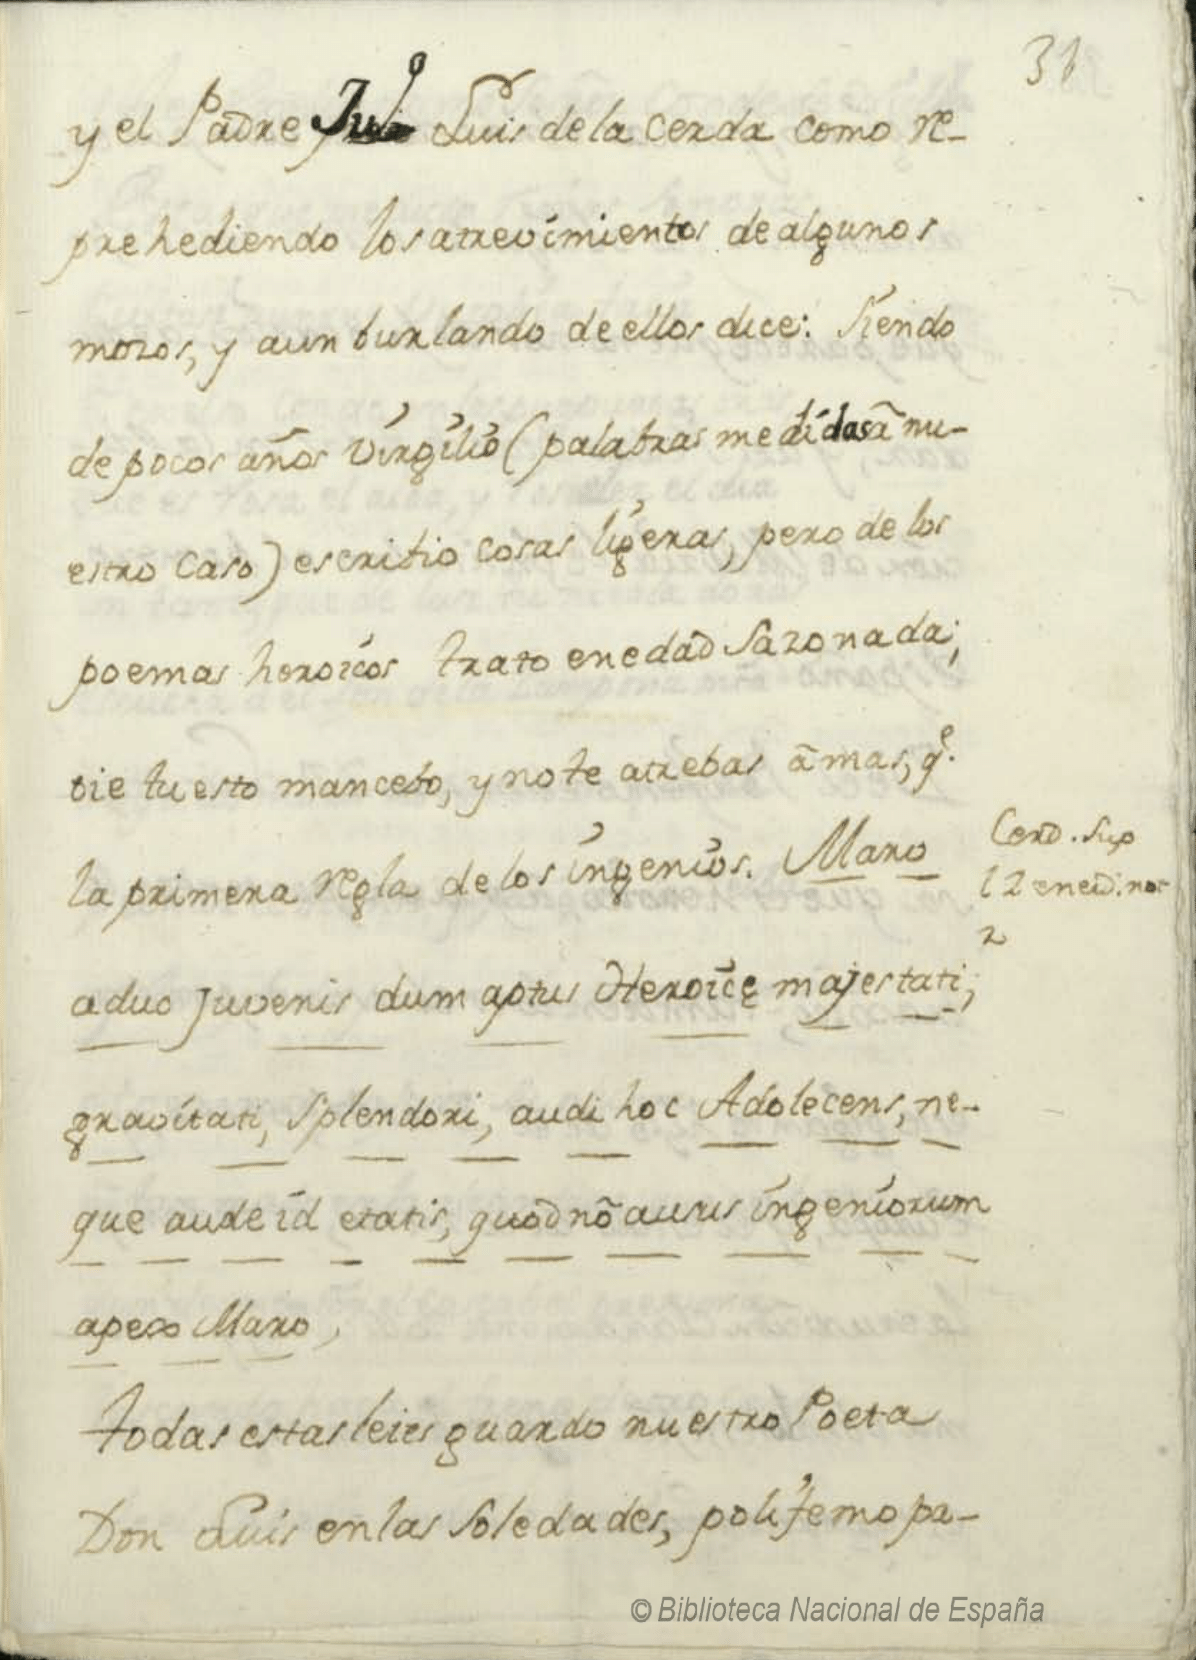 31
y el Padre Juo Luis de la cerda como re-
prehediendo los atrevimientos de algunos
mozos, y aun burlando de ellos dice: Siendo
de pocos años Virgilio (palabras medidas â nu-
estro caso) escribio cosas ligeras, pero de los
poemas heroicos trato en edad sazonada;
oie tu esto mancebo, y no te atrebas â mas, q.e
la primera regla de los ingenios. Maro
Cerd. sup
l 2 eneid. not
2
aduo Juvenis dum aptus Heroicę majestati,
gravitati, splendori, audi hoc Adolecens, ne-
que aude id etatis, quod nõ ausus ingeniorum
apex Maro,
todas estas leies guardo nuestro Poeta
Don Luis en las Soledades, polifemo pa-
© Biblioteca Nacional de España